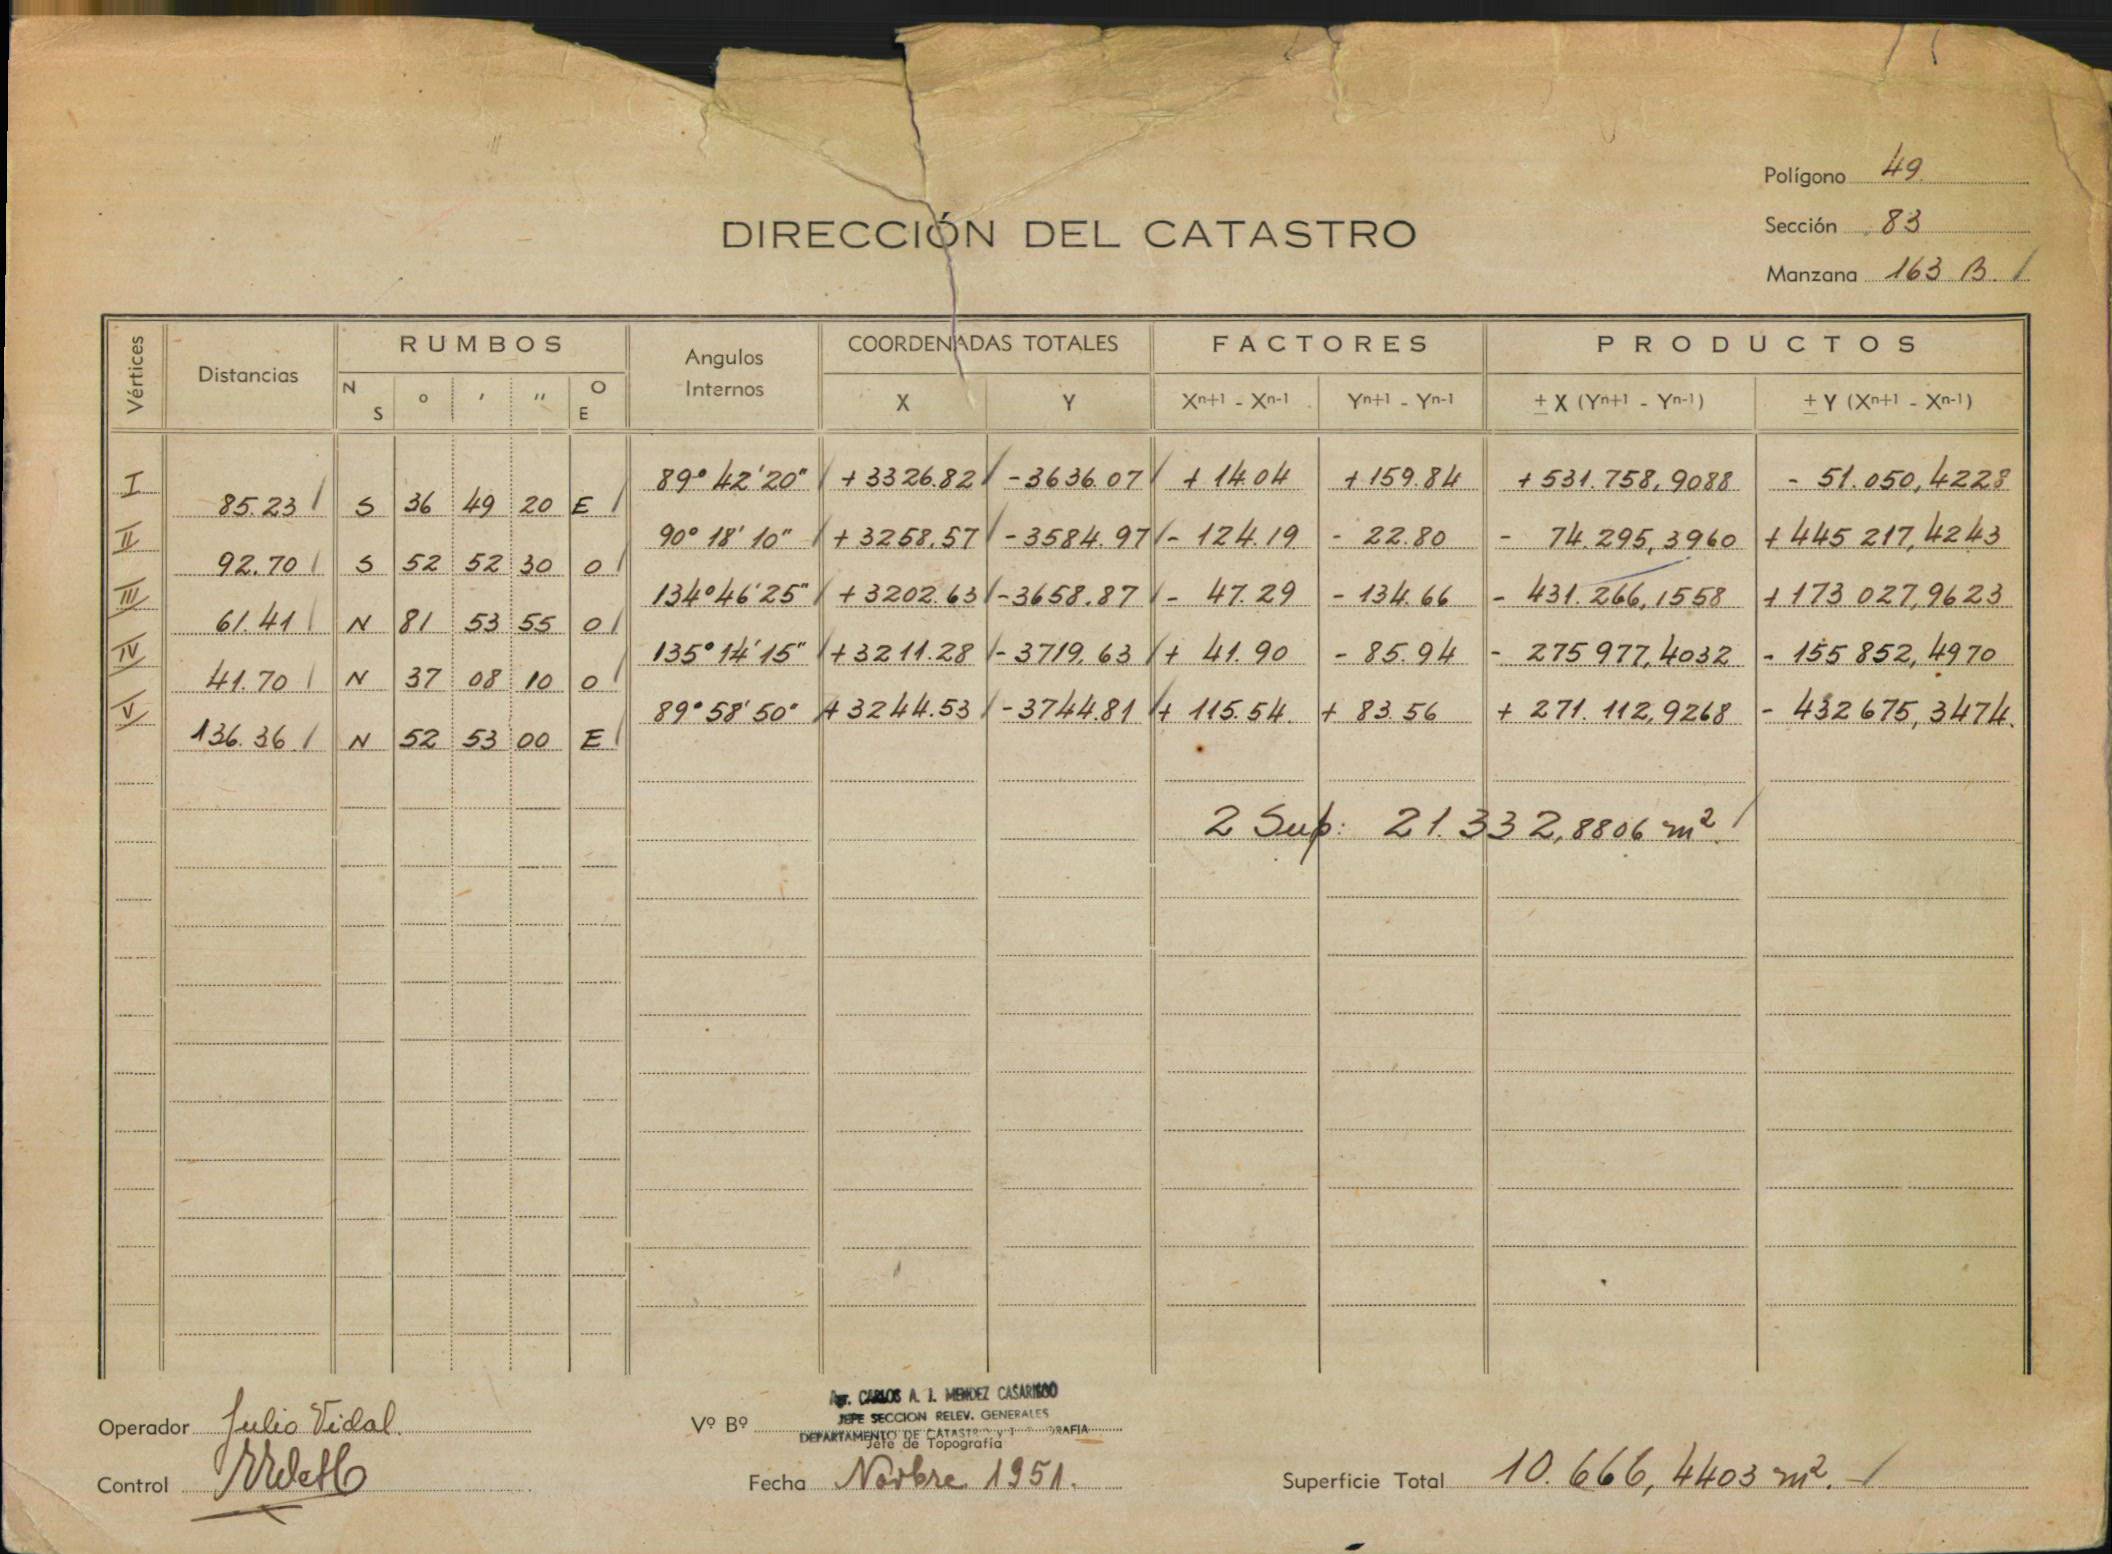 Polígono 49
Sección 83
Manzana 163 B.
DIRECCIÓN DEL CATASTRO
Vértices Distancias RUMBOS Angulos Internos COORDENADAS TOTALES FACTORES PRODUCTOS
N S ° ' " O E X Y Xn+1 - Xn-1 Yn+1 - Yn-1 ± X (Yn+1 - Yn-1) ± Y (Xn+1 - Xn-1)
I 89° 42' 20" +3326.82 -3636.07 + 14.04 +159.84 +531.758,9088 - 51.050,4228
85.23 S 36 49 20 E
II 90° 18' 10" +3258.57 -3584.97 - 124.19 - 22.80 - 74.295,3960 +445 217,4243
92.70 S 52 52 30 O
III 134° 46' 25" +3202.63 -3658.87 - 47.29 - 134.66 - 431.266,1558 +173 027,9623
61.41 N 81 53 55 O
IV 135° 14' 15" +3211.28 -3719.63 + 41.90 - 85.94 - 275 977,4032 - 155 852,4970
41.70 N 37 08 10 O
V 89° 58' 50" +3244.53 -3744.81 + 115.54. + 83.56 + 271.112,9268 - 432 675,3474.
136.36 N 52 53 00 E
2 Sup: 21.332,8806 m²
Operador Julio Vidal.
Control
Vº Bº
CARLOS A. J. MENDEZ CASARIEGO
JEFE SECCION RELEV. GENERALES
DEPARTAMENTO DE CATASTRO Y
Jefe de Topografía
Fecha Novbre 1951.
Superficie Total 10.666,4403 m².